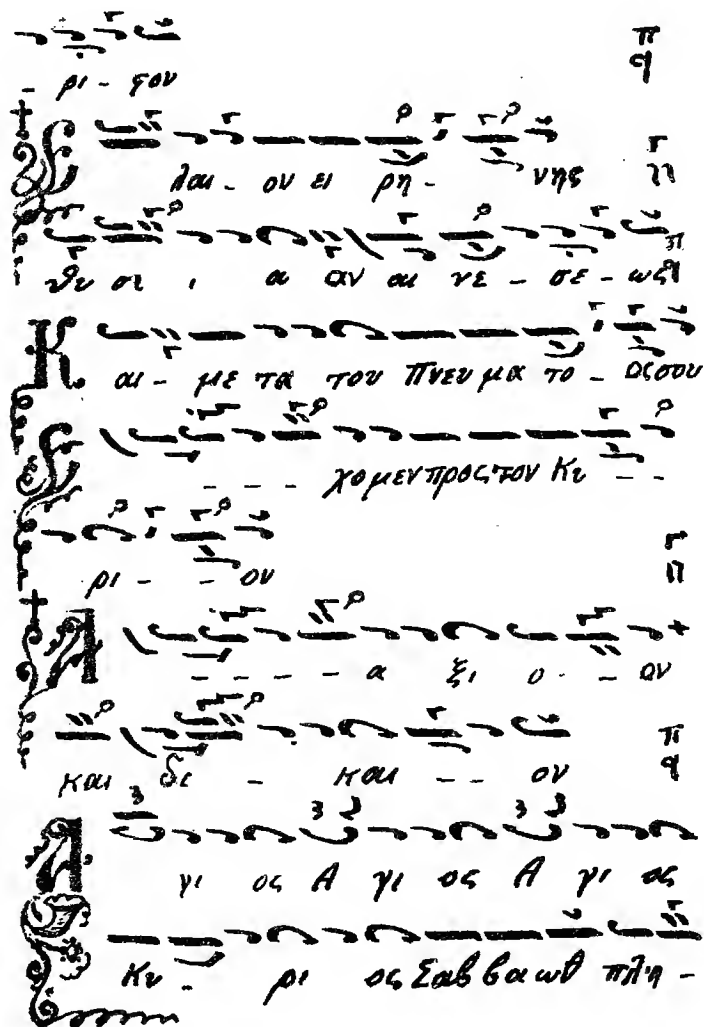 ρι - ϛον
Ελαι - ον ει ρη - νης
θυ σι , α αν αι νε - σε - ως
Και - με τα του Πνευ μα το - ος σου
Ε - - - χο μεν προς τον Κυ - -
ρι - - ον
Α - - - - - α ξι ο - - ον
και δι - και - - ον
Α γι ος Α γι ος Α γι ος
Κυ - ρι ος Σαβ βα ωθ πλη -